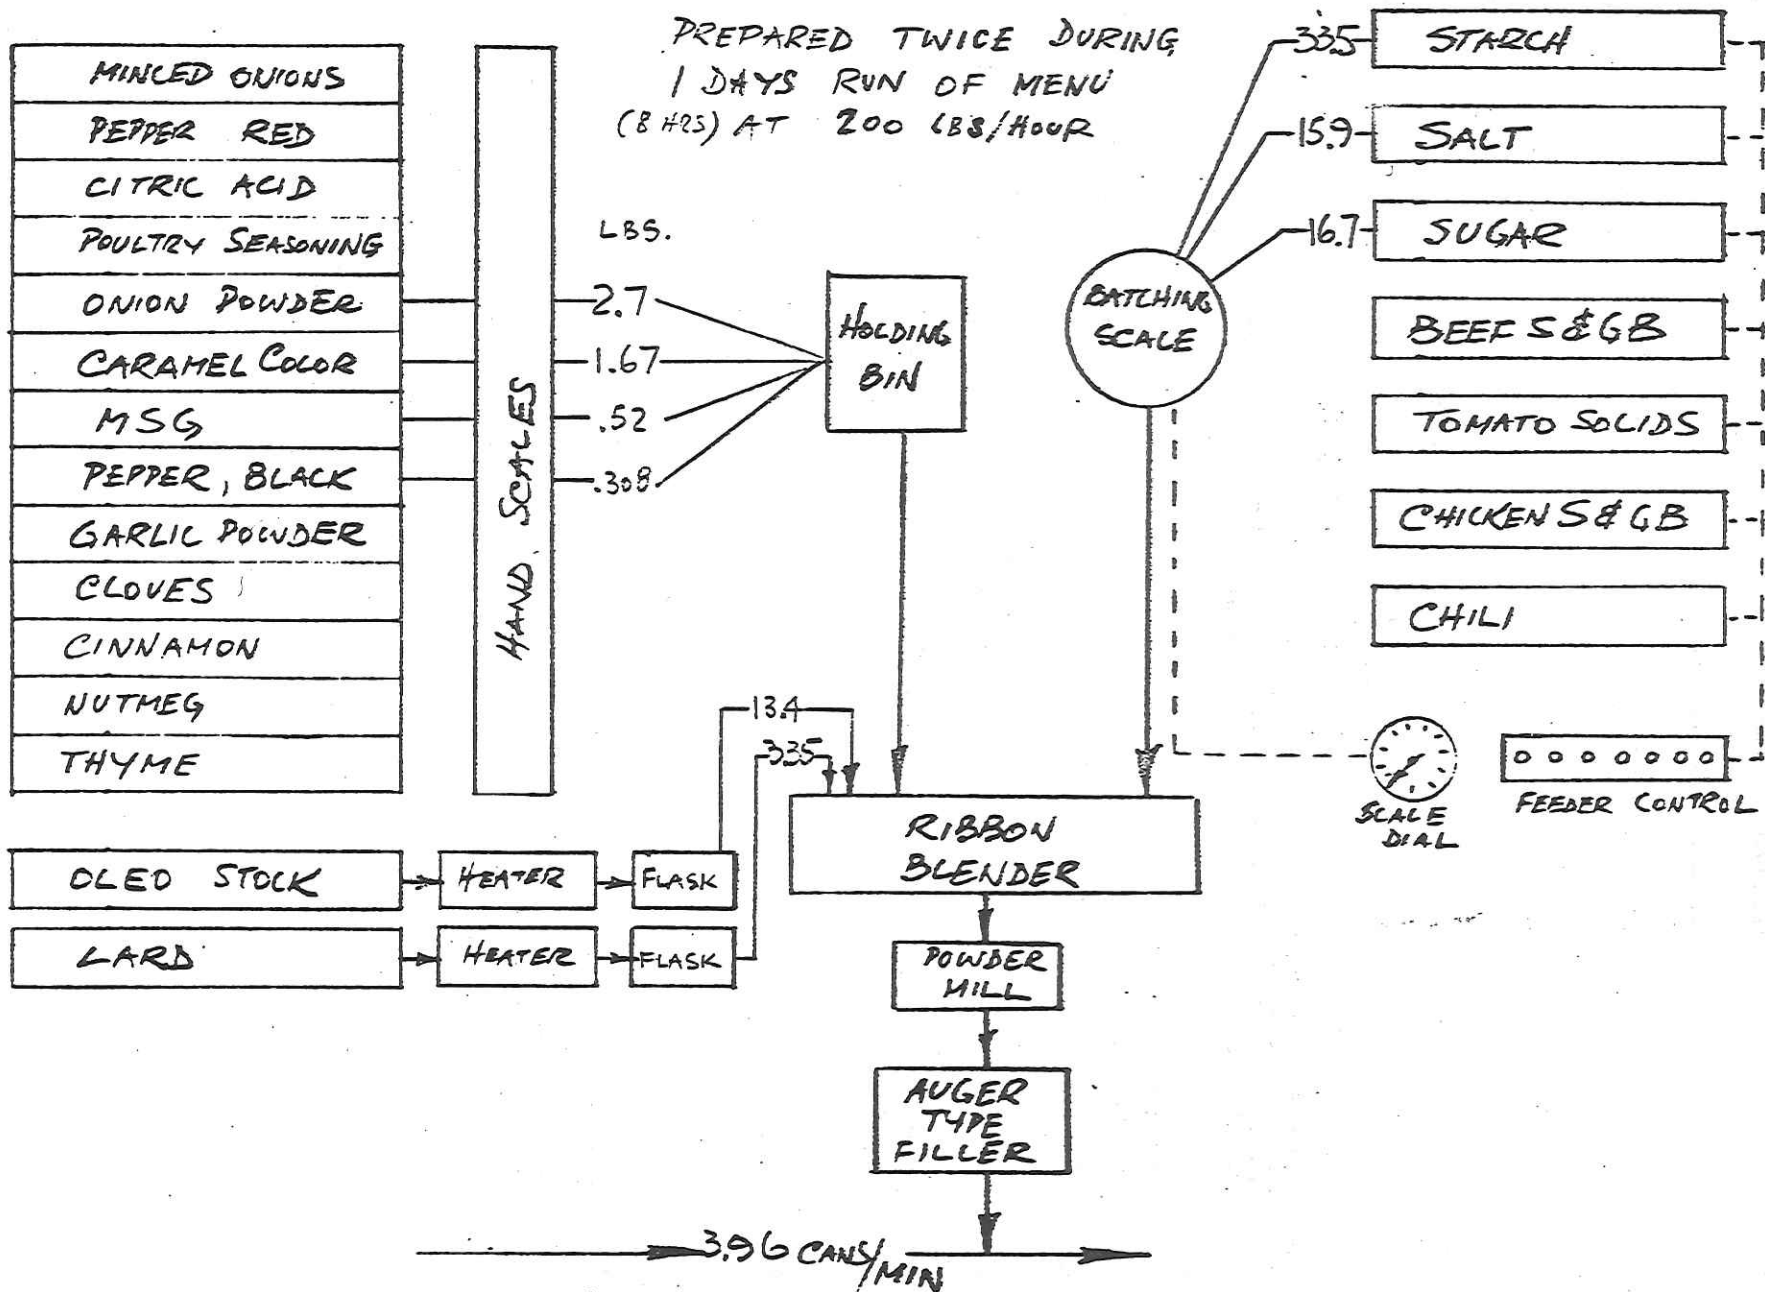 PREPARED TWICE DURING
1 DAYS RUN OF MENU
(8 HRS) AT 200 LBS/HOUR
MINCED ONIONS
PEPPER RED
CITRIC ACID
POULTRY SEASONING
ONION POWDER
CARAMEL COLOR
MSG
PEPPER, BLACK
GARLIC POWDER
CLOVES
CINNAMON
NUTMEG
THYME
HAND SCALES
LBS.
2.7
1.67
.52
.308
HOLDING
BIN
BATCHING
SCALE
33.5
STARCH
15.9
SALT
16.7
SUGAR
BEEF S & GB
TOMATO SOLIDS
CHICKEN S & GB
CHILI
SCALE
DIAL
FEEDER CONTROL
13.4
3.35
OLEO STOCK
HEATER
FLASK
LARD
HEATER
FLASK
RIBBON
BLENDER
POWDER
MILL
AUGER
TYPE
FILLER
3.96 CANS/MIN